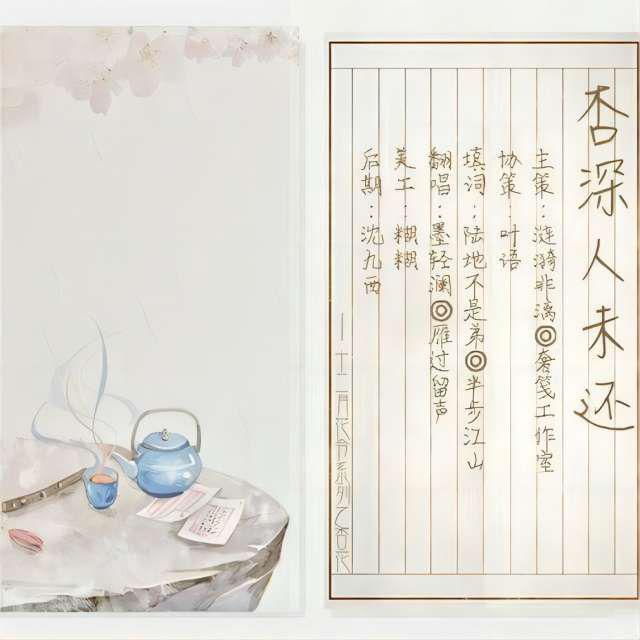 杏深人未还
主策：涟漪非漓◎奢笺工作室
协策：叶语
填词：陆地不是弟◎半步江山
翻唱：墨轻澜◎雁过留声
美工：糊糊
后期：沈九西
十二月花令系列之杏花